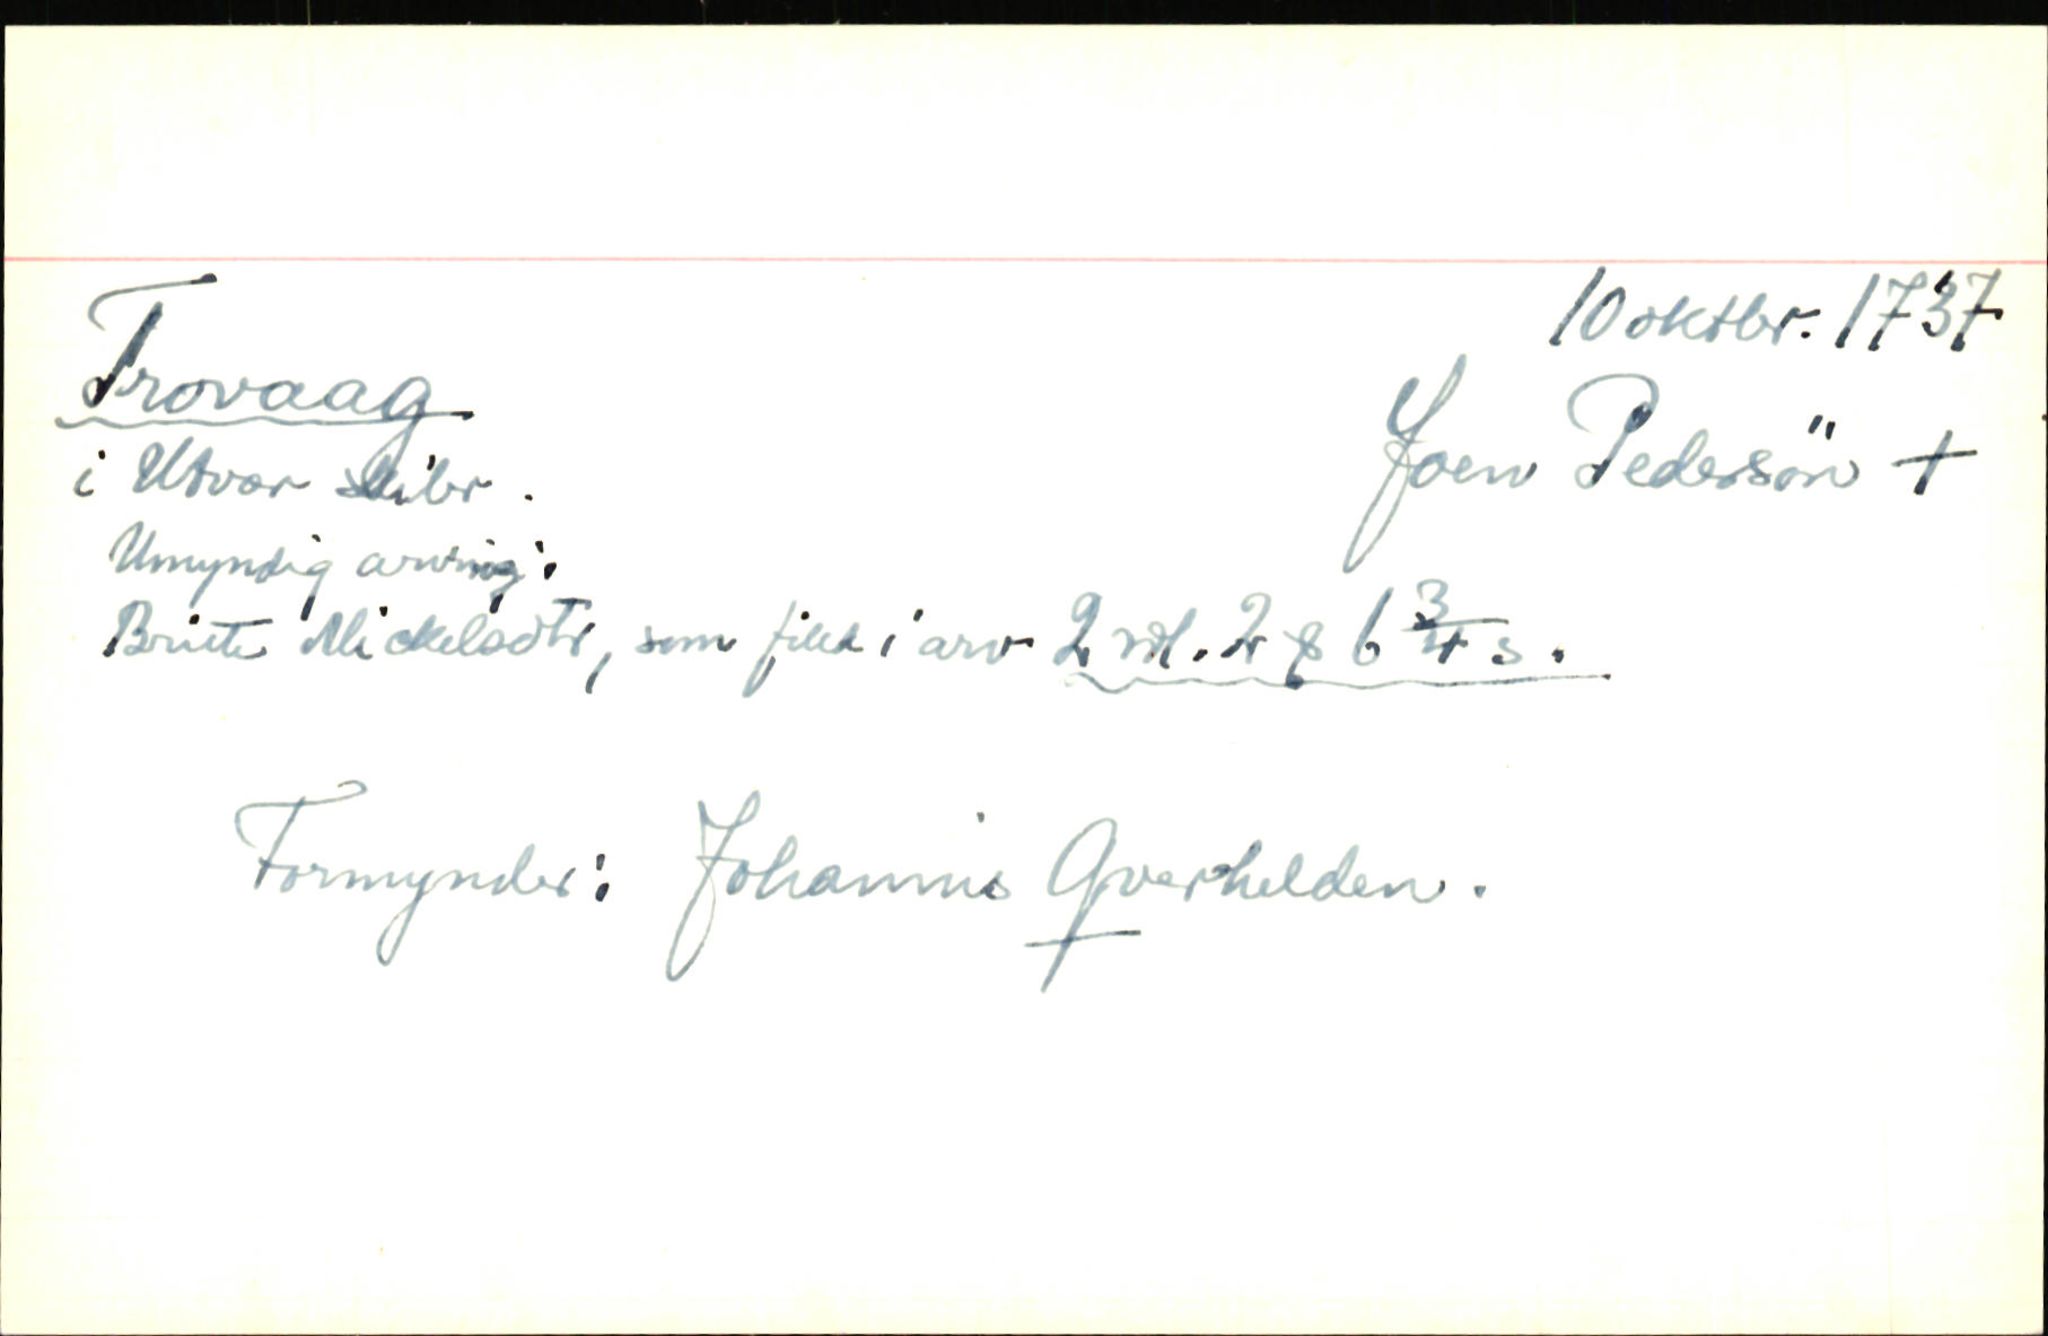 10 oktbr. 1737
Trovaag
Joen Pedersön +
i Utvær skibr.
Umyndig arving:
Britte Mickelsdtr, som fikk i arv 2 rdl. 2 ꝑ 6 3/4 s.
Formynder: Johannis Qverhelden.